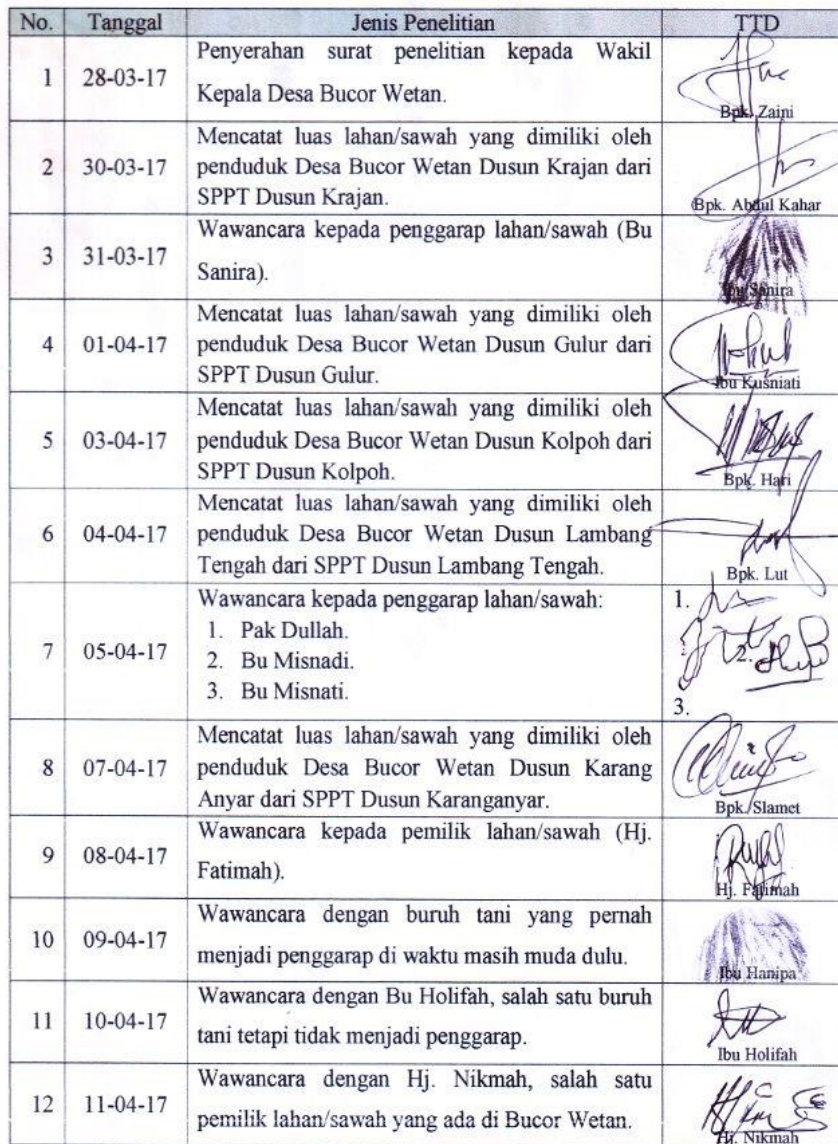 No. Tanggal Jenis Penelitian TTD
1 28-03-17 Penyerahan surat penelitian kepada Wakil
Kepala Desa Bucor Wetan.
Bpk. Zaini
2 30-03-17 Mencatat luas lahan/sawah yang dimiliki oleh
penduduk Desa Bucor Wetan Dusun Krajan dari
SPPT Dusun Krajan.
Bpk. Abdul Kahar
3 31-03-17 Wawancara kepada penggarap lahan/sawah (Bu
Sanira).
Ibu Sanira
4 01-04-17 Mencatat luas lahan/sawah yang dimiliki oleh
penduduk Desa Bucor Wetan Dusun Gulur dari
SPPT Dusun Gulur.
Ibu Kusniati
5 03-04-17 Mencatat luas lahan/sawah yang dimiliki oleh
penduduk Desa Bucor Wetan Dusun Kolpoh dari
SPPT Dusun Kolpoh.
Bpk. Hari
6 04-04-17 Mencatat luas lahan/sawah yang dimiliki oleh
penduduk Desa Bucor Wetan Dusun Lambang
Tengah dari SPPT Dusun Lambang Tengah.
Bpk. Lut
7 05-04-17 Wawancara kepada penggarap lahan/sawah:
1. Pak Dullah.
2. Bu Misnadi.
3. Bu Misnati.
1.
2.
3.
8 07-04-17 Mencatat luas lahan/sawah yang dimiliki oleh
penduduk Desa Bucor Wetan Dusun Karang
Anyar dari SPPT Dusun Karanganyar.
Bpk. Slamet
9 08-04-17 Wawancara kepada pemilik lahan/sawah (Hj.
Fatimah).
Hj. Fatimah
10 09-04-17 Wawancara dengan buruh tani yang pernah
menjadi penggarap di waktu masih muda dulu.
Ibu Hanipa
11 10-04-17 Wawancara dengan Bu Holifah, salah satu buruh
tani tetapi tidak menjadi penggarap.
Ibu Holifah
12 11-04-17 Wawancara dengan Hj. Nikmah, salah satu
pemilik lahan/sawah yang ada di Bucor Wetan.
Hj. Nikmah